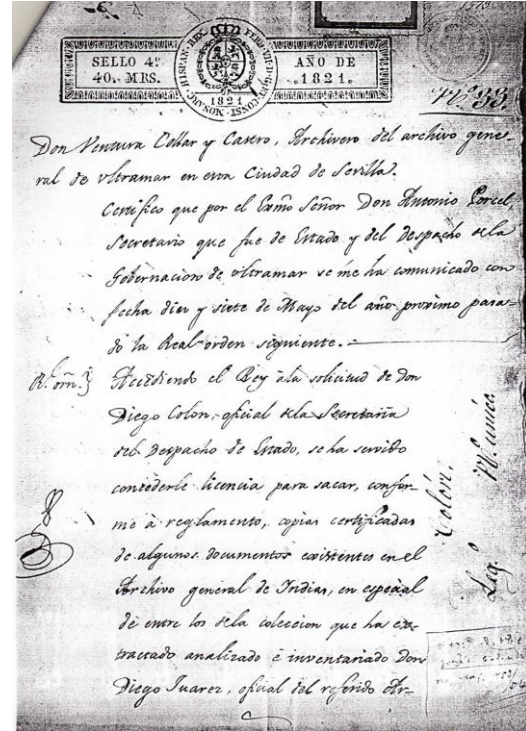 SELLO 4º
40. MRS.
HISPAN. REX. FERD. VII. D. G. ET CONST. MON.
1821
AÑO DE
1821.
Nº 33
Don Ventura Collar y Castro, Archivero del archivo gene-
ral de Ultramar en esta Ciudad de Sevilla.
Certifico que por el Exmo Señor Don Antonio Porcel
Secretario que fue de Estado y del Despacho de la
Gobernacion de Ultramar se me ha comunicado con
fecha diez y siete de Mayo del año proximo pasa-
do la Real orden siguiente.
R. orn. } Accediendo el Rey a la solicitud de Don
Diego Colon, oficial de la Secretaria
del Despacho de Estado, se ha servido
concederle licencia para sacar, confor-
me à reglamento, copias certificadas
de algunos documentos existentes en el
Archivo general de Indias, en especial
de entre los de la coleccion que ha ex-
tractado analizado è inventariado Don
Diego Juarez, oficial del referido Ar-
Colón.
Leg º Nº unica